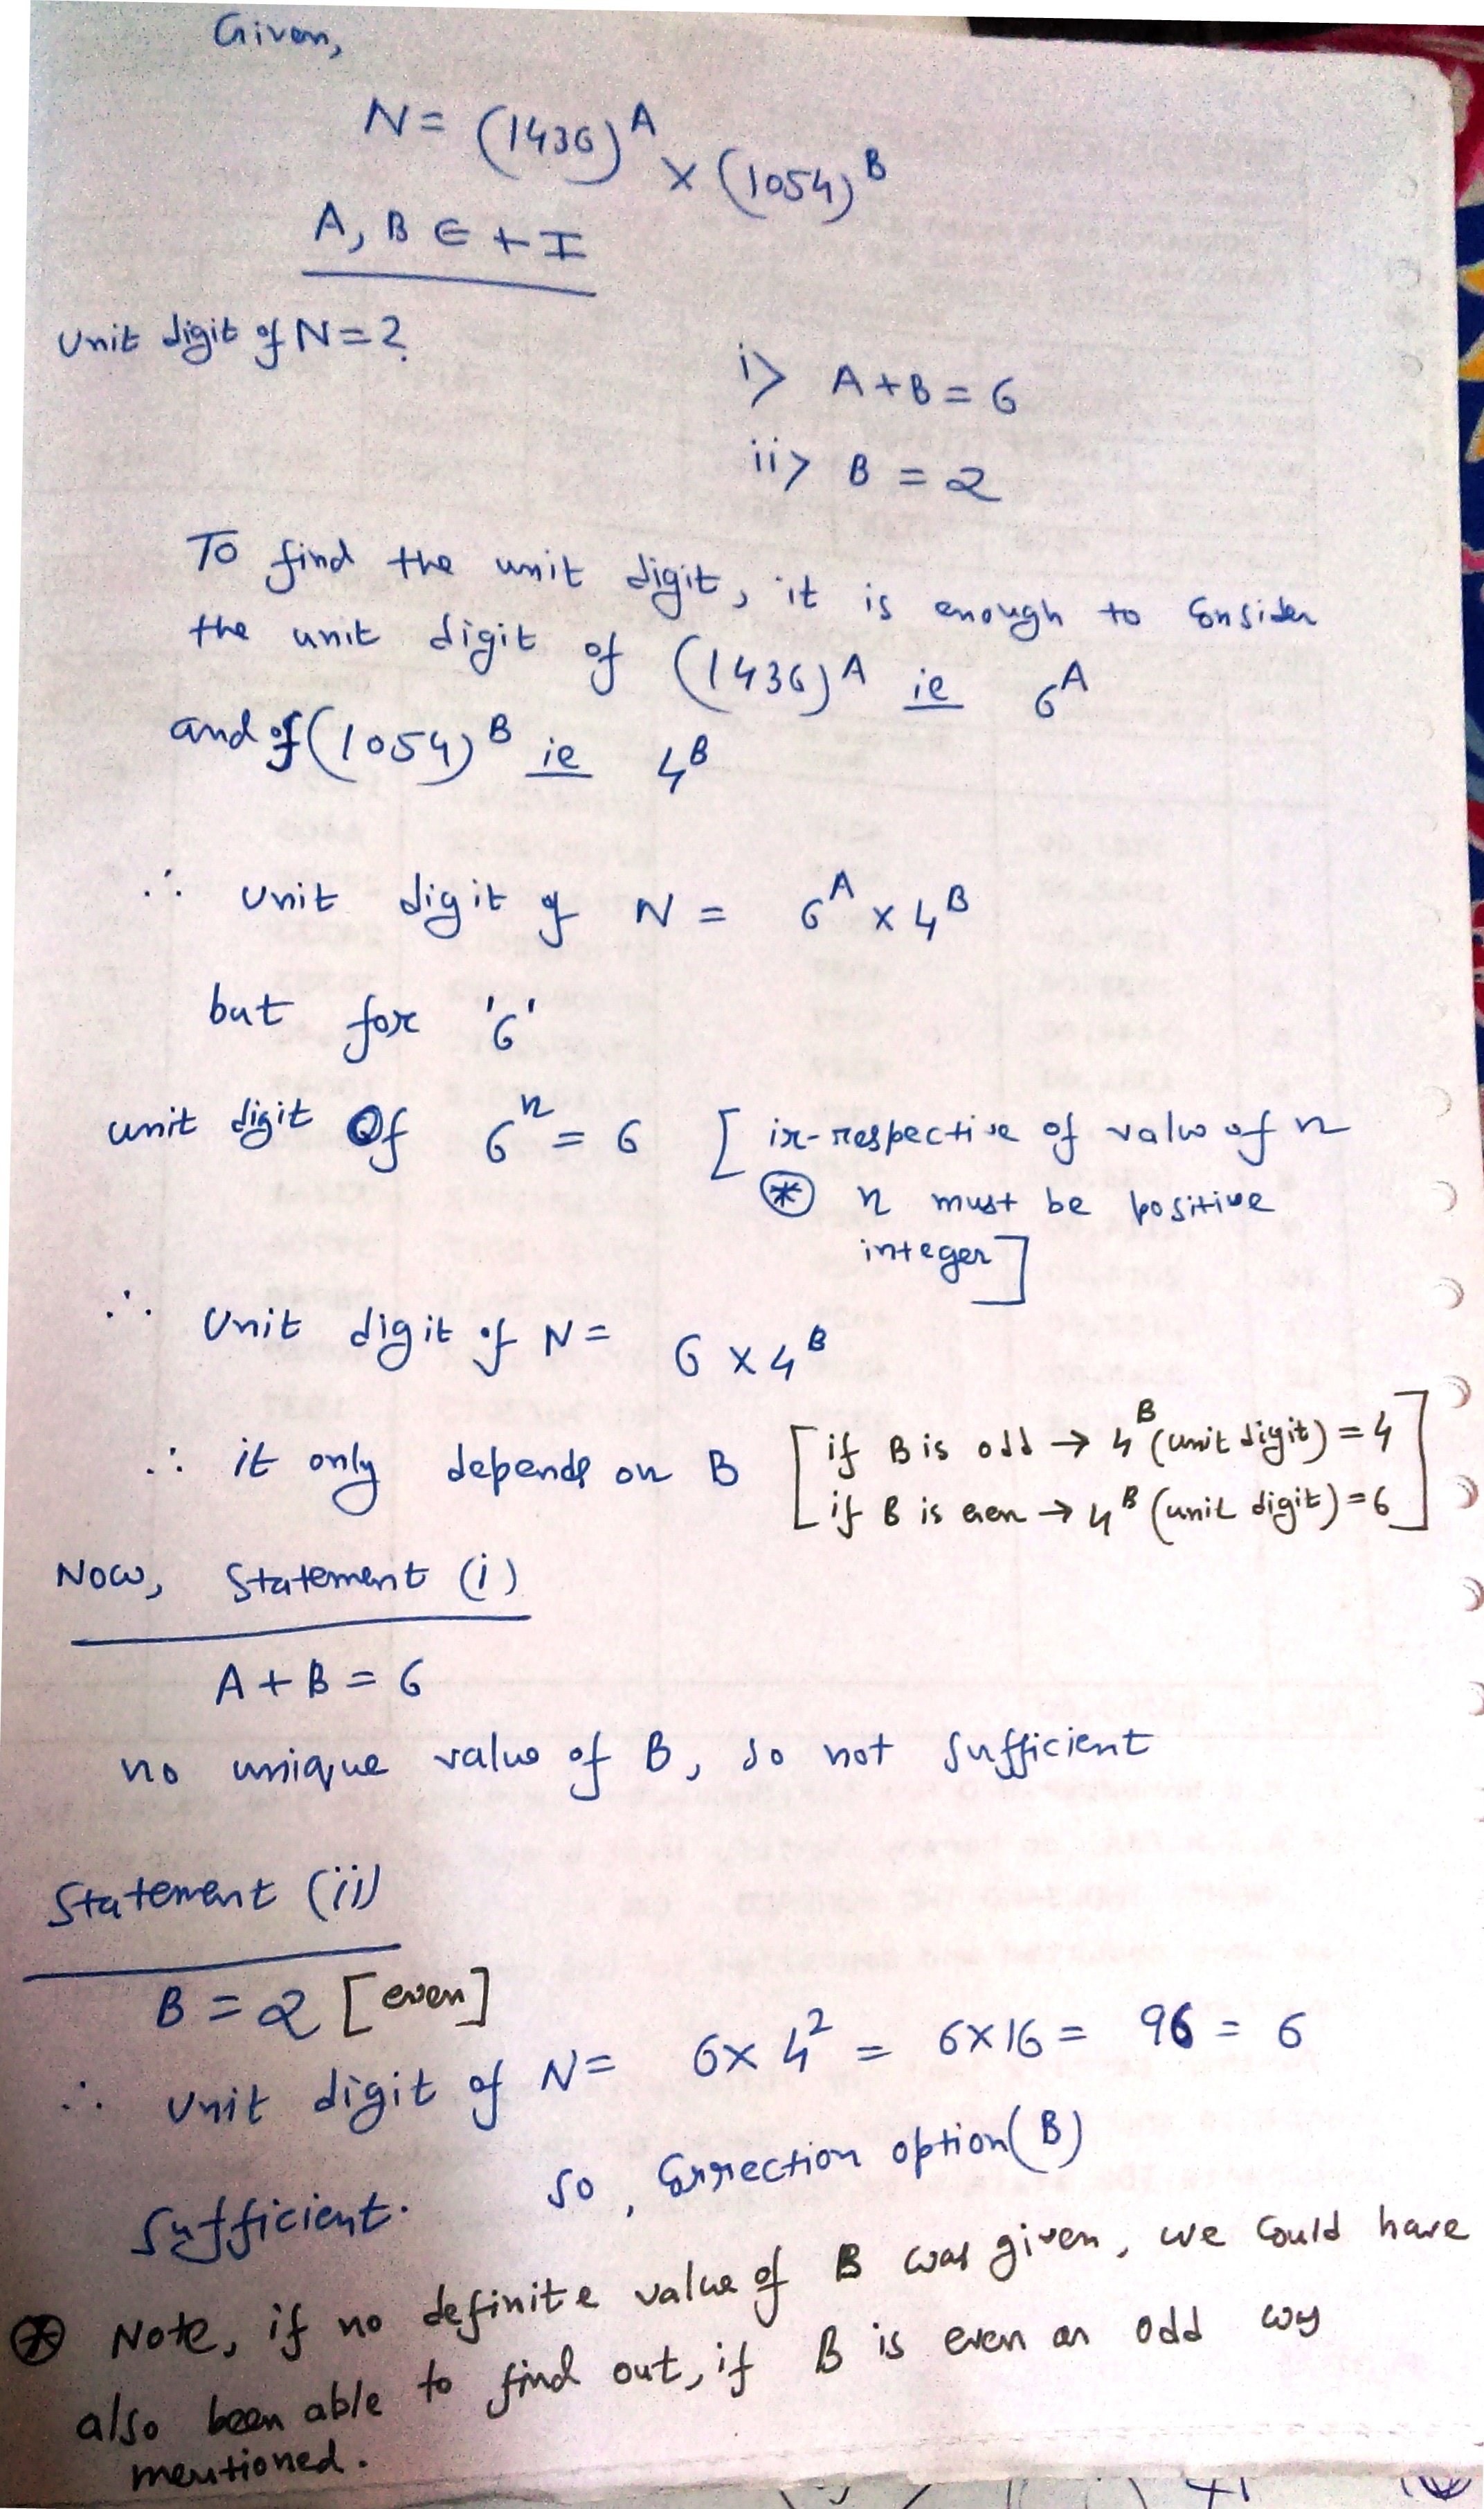 Given,
N = (1436)^A × (1054)^B
A, B ∈ + I
Unit digit of N = ?
i> A + B = 6
ii> B = 2
To find the unit digit, it is enough to Consider
the unit digit of (1436)^A ie 6^A
and of (1054)^B ie 4^B
∴ Unit digit of N = 6^A × 4^B
but for '6'
unit digit Of 6^n = 6 [ ir-respective of value of n
⊛ n must be positive
integer ]
∴ Unit digit of N = 6 × 4^B
∴ it only depends on B [ if B is odd → 4^B (unit digit) = 4
if B is even → 4^B (unit digit) = 6 ]
Now, Statement (i)
A + B = 6
no unique value of B, so not sufficient
Statement (ii)
B = 2 [even]
∴ Unit digit of N = 6 × 4^2 = 6 × 16 = 96 = 6
Sufficient. So, Correction option (B)
⊛ Note, if no definite value of B was given, we Could have
also been able to find out, if B is even or odd wy
mentioned.